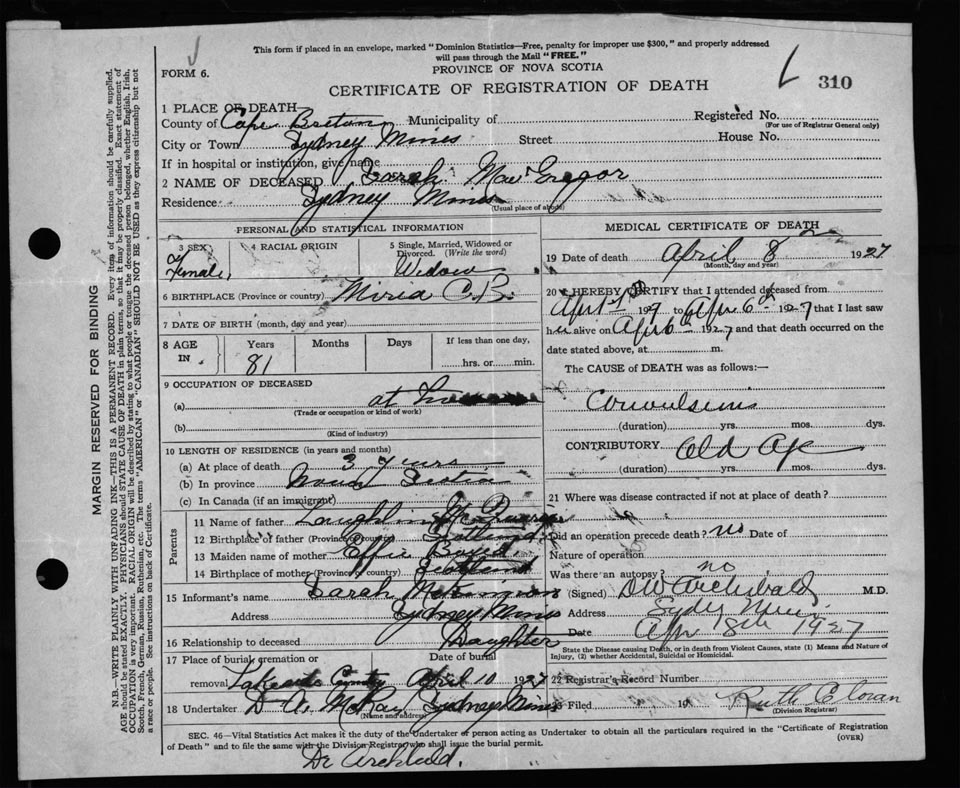 This form if placed in an envelope, marked "Dominion Statistics—Free, penalty for improper use $300," and properly addressed
will pass through the Mail "FREE."
FORM 6.
PROVINCE OF NOVA SCOTIA
CERTIFICATE OF REGISTRATION OF DEATH
310
1 PLACE OF DEATH
County of Cape Breton Municipality of Registered No.
(For use of Registrar General only)
City or Town Sydney Mines Street House No.
If in hospital or institution, give name
2 NAME OF DECEASED Sarah MacGregor
Residence Sydney Mines
(Usual place of abode)
PERSONAL AND STATISTICAL INFORMATION
3 SEX
Female
4 RACIAL ORIGIN
5 Single, Married, Widowed or
Divorced. (Write the word)
Widow
6 BIRTHPLACE (Province or country) Miria C.B.
7 DATE OF BIRTH (month, day and year)
8 AGE
IN
Years
81
Months
Days
If less than one day,
hrs. or min.
9 OCCUPATION OF DECEASED
(a) at
(Trade or occupation or kind of work)
(b)
(Kind of industry)
10 LENGTH OF RESIDENCE (in years and months)
(a) At place of death 3 years
(b) In province Nova Scotia
(c) In Canada (if an immigrant)
Parents
11 Name of father Laughlin
12 Birthplace of father (Province or country) Scotland
13 Maiden name of mother Effie Boyd
14 Birthplace of mother (Province or country) Scotland
15 Informant's name Sarah McKinnon
Address Sydney Mines
16 Relationship to deceased Daughter
17 Place of burial, cremation or Date of burial
removal Lakeside Cemetry April 10 1927
18 Undertaker D. A. McKay Sydney Mines
(Name and address)
MEDICAL CERTIFICATE OF DEATH
19 Date of death April 8 1927
(Month, day and year)
20 I HEREBY CERTIFY that I attended deceased from
April 1st 1927 to Apr 6th 1927 that I last saw
her alive on Apr 6th 1927 and that death occurred on the
date stated above, at m.
The CAUSE of DEATH was as follows:—
Convulsions
(duration) yrs. mos. dys.
CONTRIBUTORY Old Age
(duration) yrs. mos. dys.
21 Where was disease contracted if not at place of death?
Did an operation precede death? no Date of
Nature of operation
Was there an autopsy? no
(Signed) DW Archibald M.D.
Address Sydney Mines
Date Apr 8th 1927
State the Disease causing Death, or in death from Violent Causes, state (1) Means and Nature of
Injury, (2) whether Accidental, Suicidal or Homicidal.
22 Registrar's Record Number
Filed 19 Ruth
(Division Registrar)
SEC. 46—Vital Statistics Act makes it the duty of the Undertaker or person acting as Undertaker to obtain all the particulars required in the "Certificate of Registration
of Death" and to file the same with the Division Registrar who shall issue the burial permit.
(OVER)
Dr Archibald.
MARGIN RESERVED FOR BINDING
N.B.—WRITE PLAINLY WITH UNFADING INK—THIS IS A PERMANENT RECORD. Every item of information should be carefully supplied.
AGE should be stated EXACTLY. PHYSICIANS should STATE CAUSE OF DEATH in plain terms, so that it may be properly classified. Exact statement of
OCCUPATION is very important. RACIAL ORIGIN will be described by stating to what people or tongue the deceased person belonged, whether English, Irish,
Scotch, French, German, Russian, Ruthenian, etc. The terms "AMERICAN" or "CANADIAN" SHOULD NOT BE USED as they express citizenship but not
a race or people. See instructions on back of Certificate.